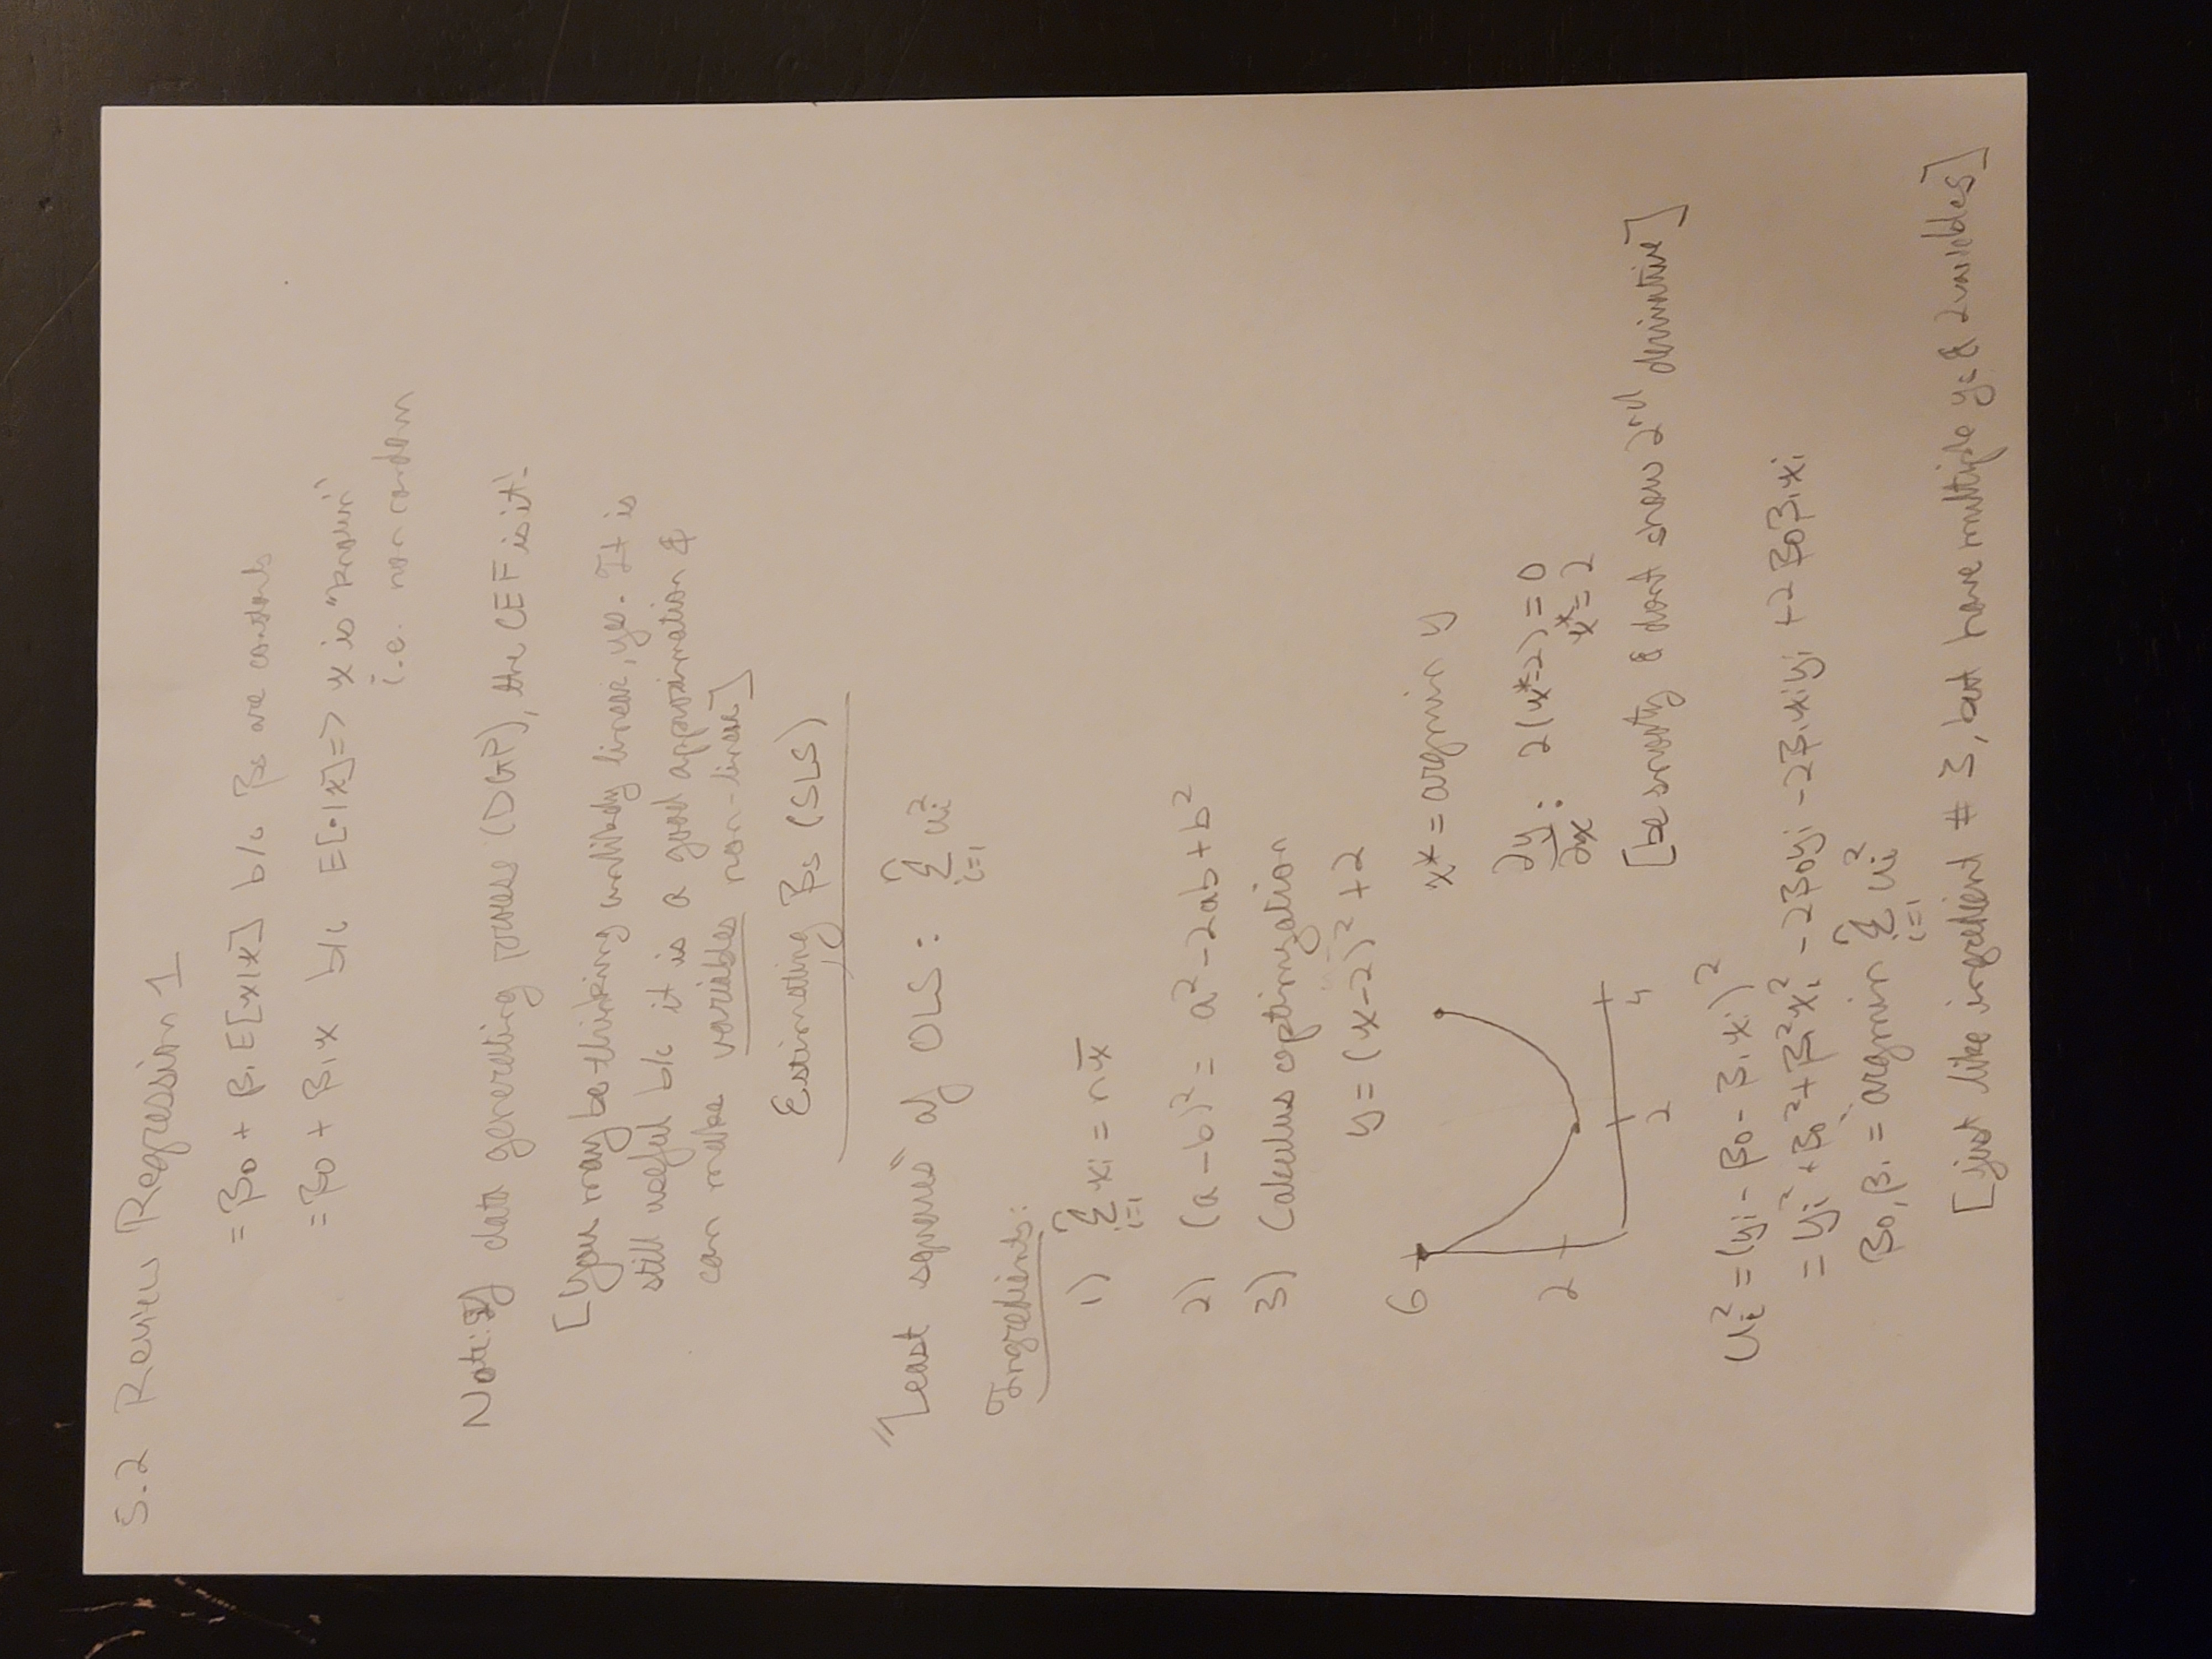 5.2 Review Regression 1
= β0 + β1 E[x|x] b/c βs are constants
= β0 + β1x b/c E[·|x] => x is "known"
i.e. non random
Note: If data generating process (DGP), the CEF is it!
[You may be thinking unlikely linear, yes. It is
still useful b/c it is a good approximation &
can make variables non-linear]
Estimating βs (SLS)
"Least squares" of OLS: Σ_{i=1}^{n} u_i²
Ingredients:
1) Σ_{i=1}^{n} xi = n x̄
2) (a-b)² = a²-2ab+b²
3) Calculus optimization
y = (x-2)² +2
6
x* = argmin y
∂y/∂x : 2(x*-2) = 0
2
x* = 2
2 4
[be snooty & dont show 2nd derivative]
u_i² = (yi - β0 - β1xi)²
= yi² + β0² + β1²xi² - 2β0yi - 2β1xiyi + 2β0β1xi
β0, β1 = argmin Σ_{i=1}^{n} u_i²
[just like ingredient # 3, but have multiple ys & 2 variables]